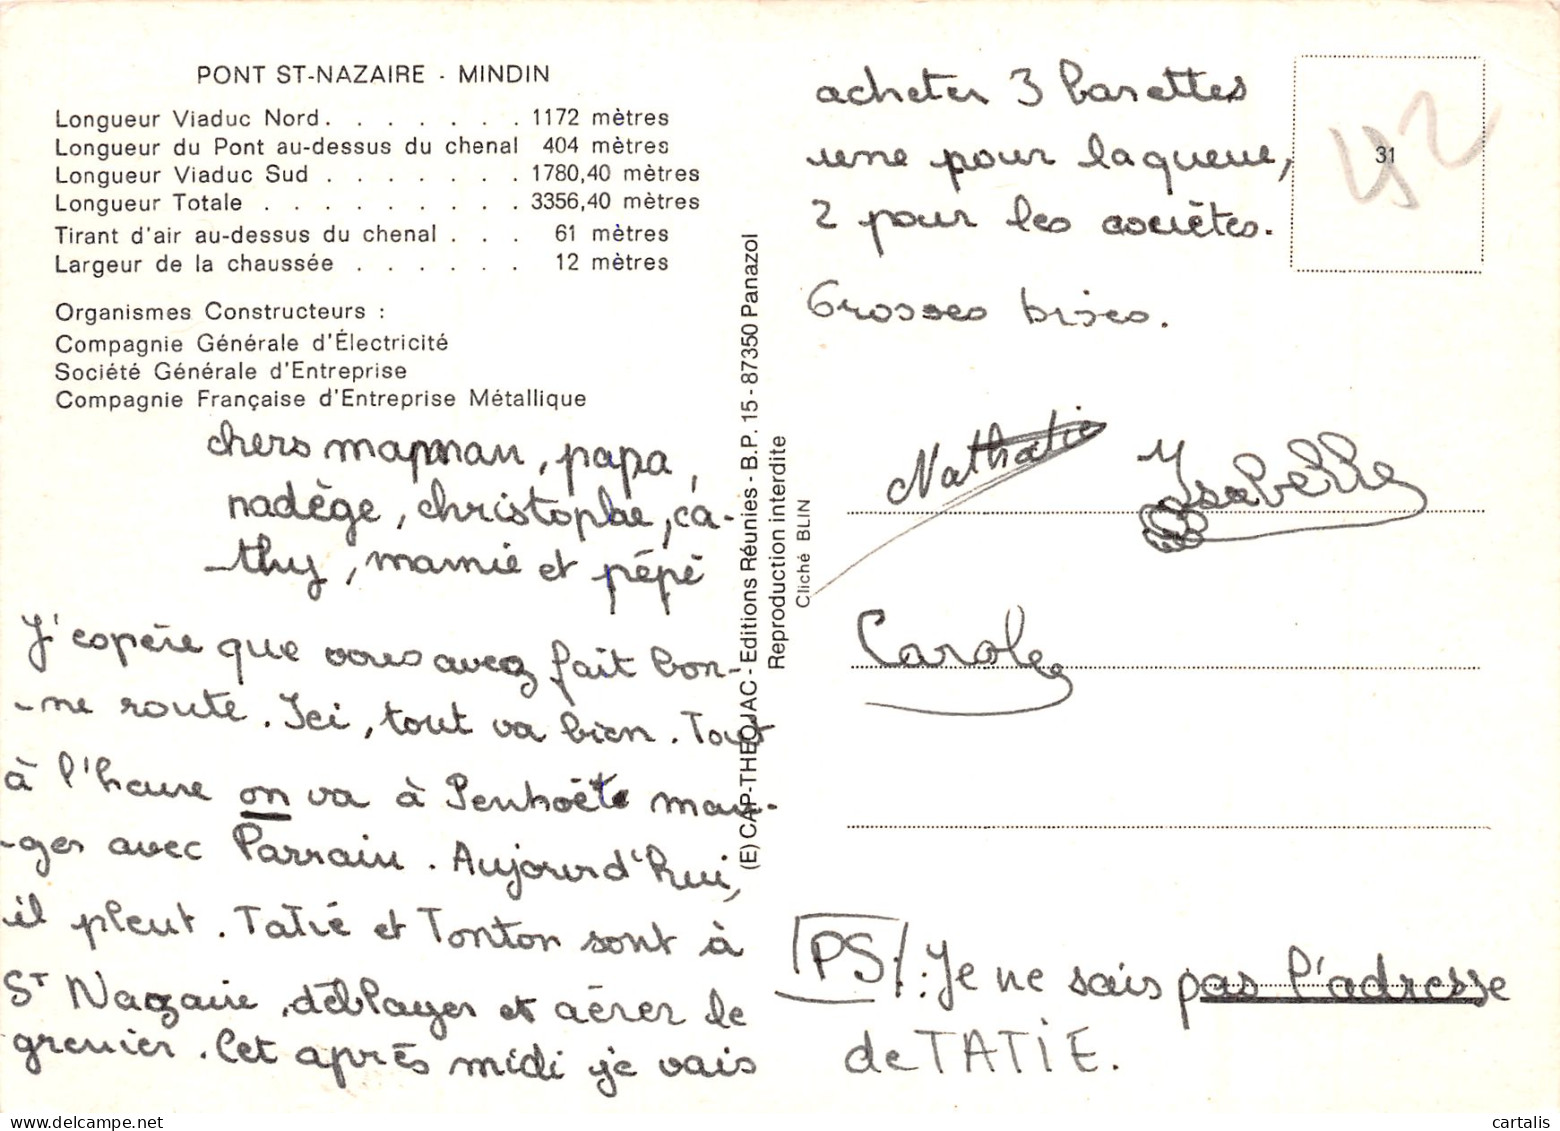 PONT ST-NAZAIRE - MINDIN
Longueur Viaduc Nord. . . . . . . 1172 mètres
Longueur du Pont au-dessus du chenal 404 mètres
Longueur Viaduc Sud . . . . . . . 1780,40 mètres
Longueur Totale . . . . . . . . . 3356,40 mètres
Tirant d'air au-dessus du chenal . . . 61 mètres
Largeur de la chaussée . . . . . . 12 mètres
Organismes Constructeurs :
Compagnie Générale d'Électricité
Société Générale d'Entreprise
Compagnie Française d'Entreprise Métallique
chers maman, papa,
nadège, christophe, ca-
-thy, mamie et pépé
J'espère que vous avez fait bon-
-ne route. Ici, tout va bien. Tout
à l'heure on va à Penhoët man-
-ger avec Parrain. Aujourd'hui,
il pleut. Tatie et Tonton sont à
St Nazaire, déblayer et aérer le
grenier. Cet après midi je vais
(E) CAP-THEOJAC - Editions Réunies - B.P. 15 - 87350 Panazol
Reproduction interdite
Cliché BLIN
acheter 3 barettes
une pour la queue,
2 pour les couètes.
Grosses bises.
31
42
Nathalie
Isabelle
Carole
PS : Je ne sais pas l'adresse
de TATIE.
cartalis